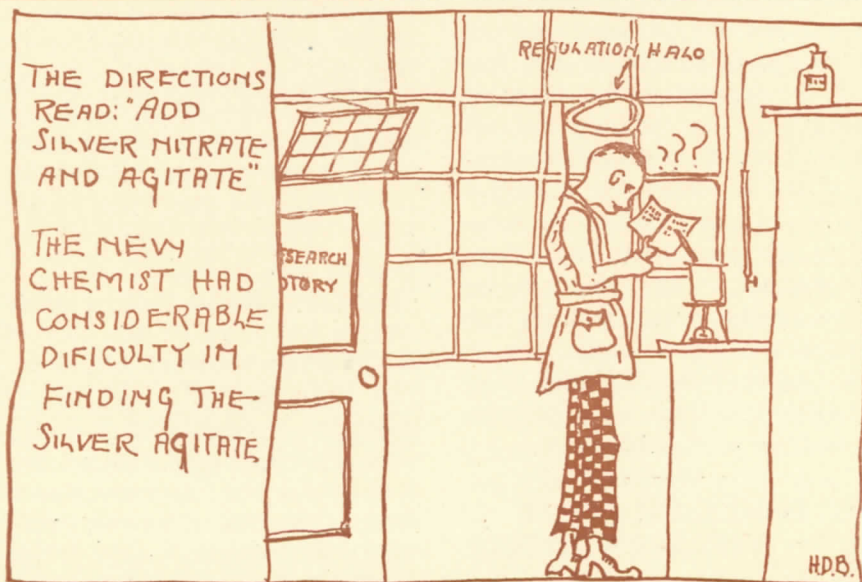 THE DIRECTIONS
READ: "ADD
SILVER NITRATE
AND AGITATE"
THE NEW
CHEMIST HAD
CONSIDERABLE
DIFICULTY IN
FINDING THE
SILVER AGITATE
SEARCH
TORY
REGULATION HALO
???
H.D.B.